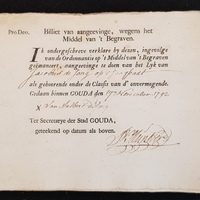 Pro Deo.
Billiet van aangeevinge, wegens het
Middel van 't Begraven.
Ik ondergeschreve verklare by dezen, ingevolge
van de Ordonnantie op 't Middel van 't Begraven
geëmaneert, aangeevinge te doen van het Lyk van
Jacobus de Jong
als gehoorende onder de Classis van d' onvermogende.
Gedaan binnen GOUDA den 17 November 1792
X
Ter Secretarye der Stad GOUDA,
geteekend op datum als boven.